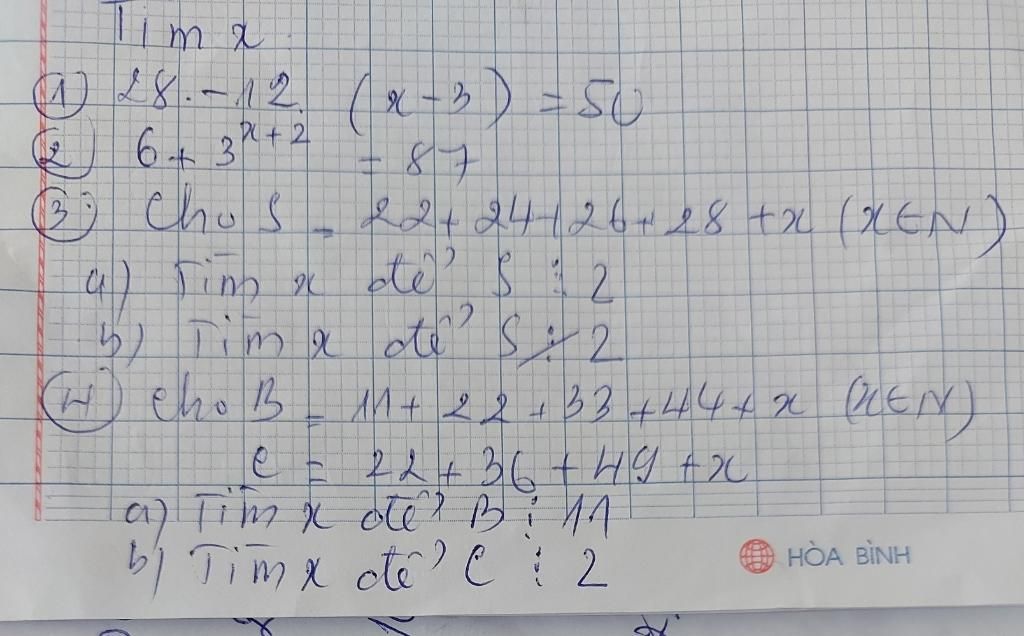 Tìm x
① 28.-12.(x-3) = 50
② 6 + 3^{x+2} = 87
③ Cho S = 22 + 24 + 26 + 28 + x (x∈N)
a) Tìm x để S ⋮ 2
b) Tìm x để S ⋮̸ 2
④ Cho B = 11 + 22 + 33 + 44 + x (x∈N)
C = 22 + 36 + 49 + x
a) Tìm x để B ⋮ 11
b) Tìm x để C ⋮ 2
HÒA BÌNH